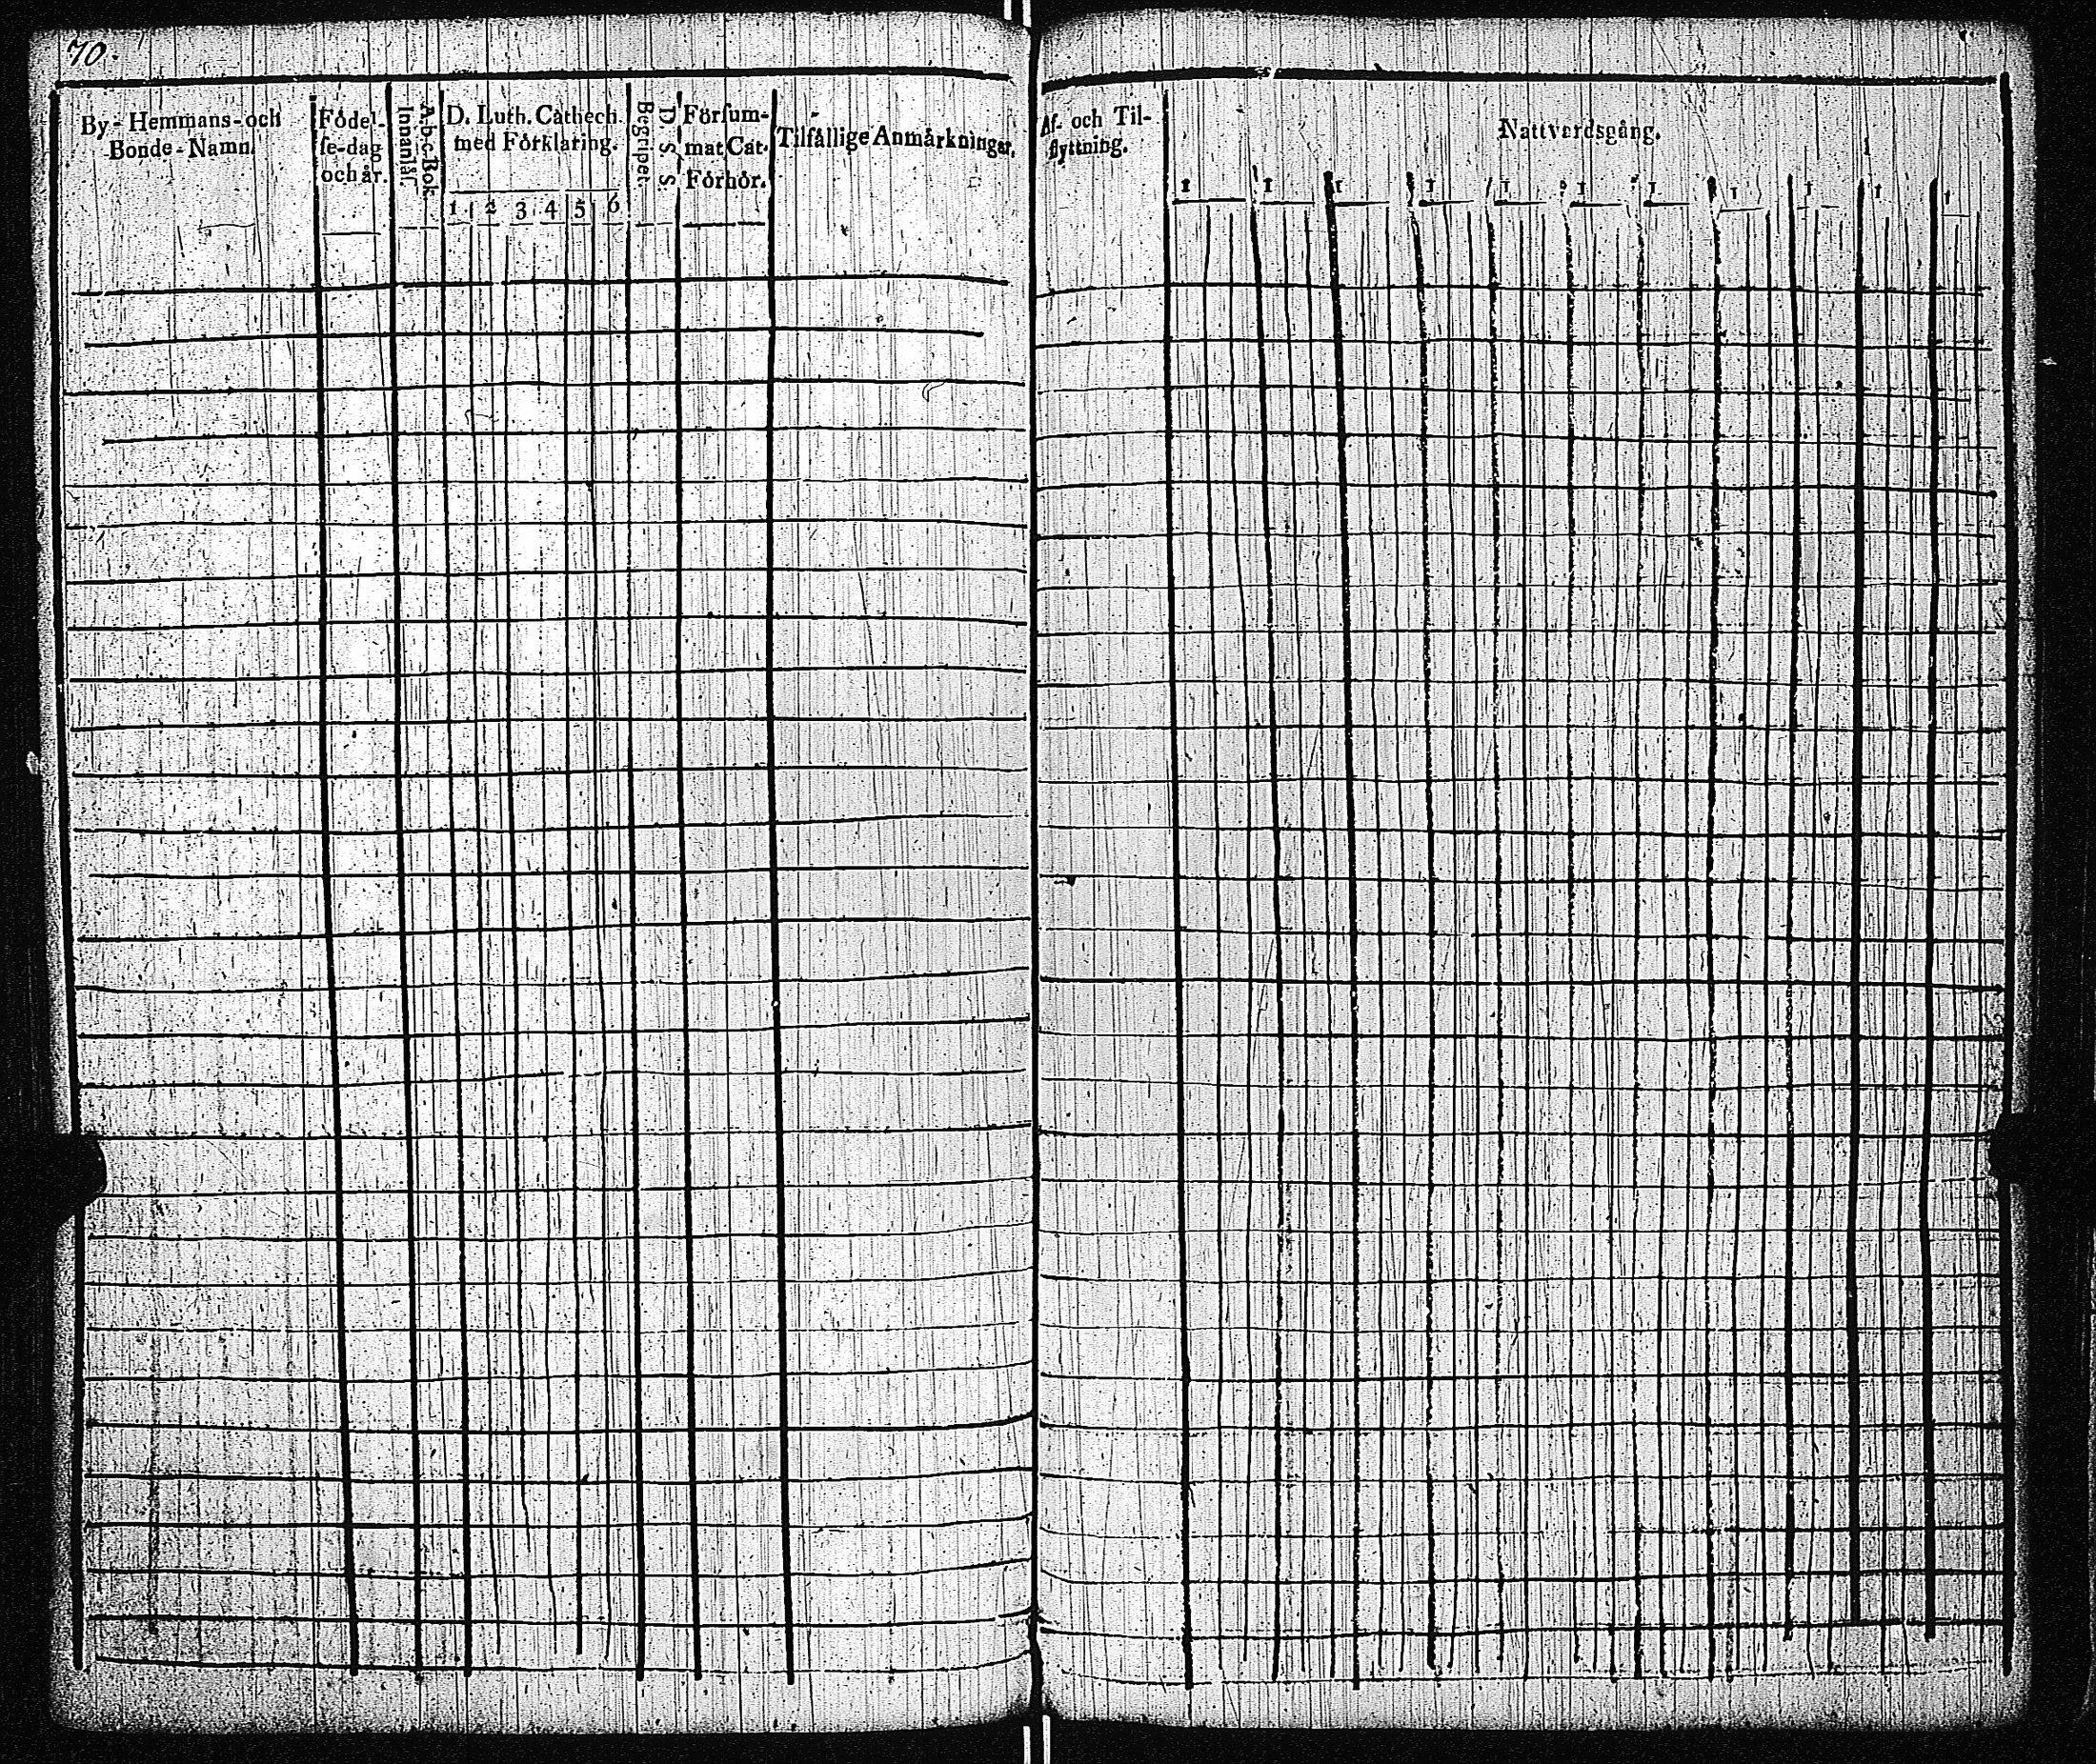 70.
By-Hemmans-och
Bonde-Namn.
Födel-
se-dag
och år.
A.b.c. Bok
Innanlär.
D. Luth. Cathech.
med Förklaring.
1 2 3 4 5 6
D. S. S.
Begripet.
Försum-
mat Cat.
Förhör.
Tilfällige Anmärkningar.
Af- och Til-
flyttning.
Nattvardsgång.
1 1 1 1 1 1 1 1 1 1 1